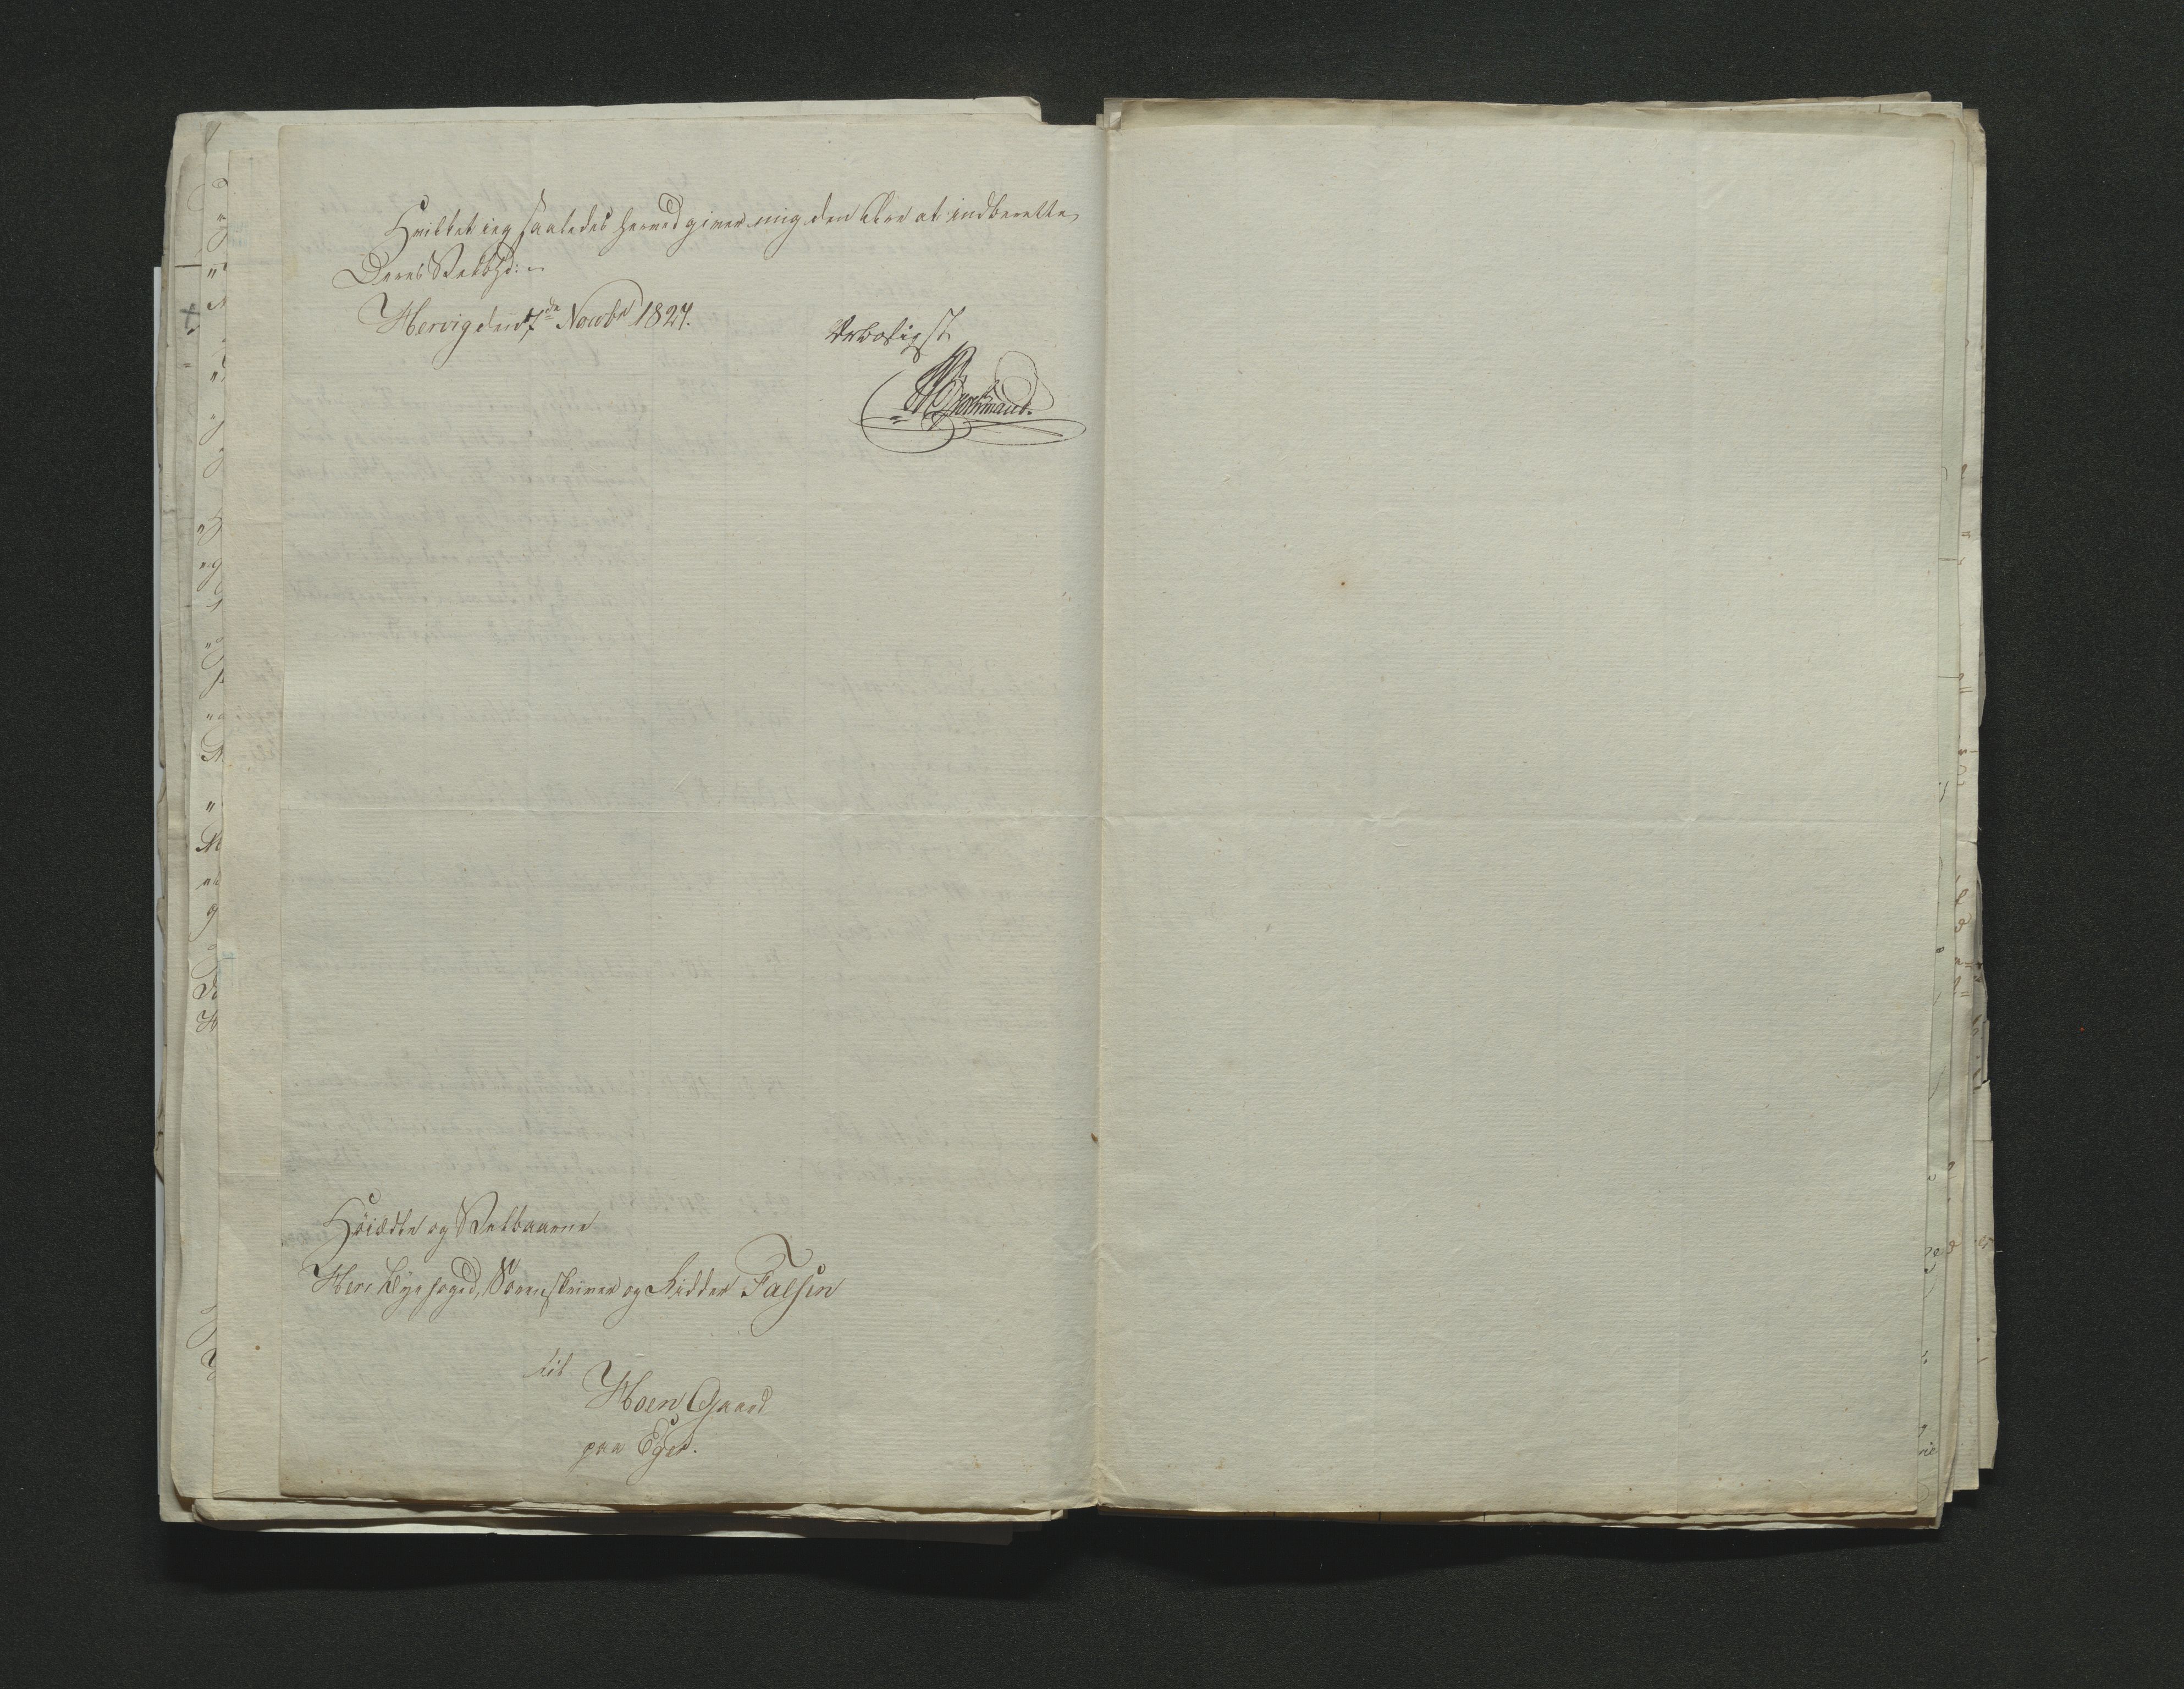 Hvilket jeg saaledes herved giver mig den Ære at indberette
Deres Velbhd:
Hervig den 7de Novbr 1824.
Ærbødigst
Høiædle og Velbaarne
Herr Byefoged, Sorenskriver og Ridder Falsen
til
Hoen Gaard
paa Eger.